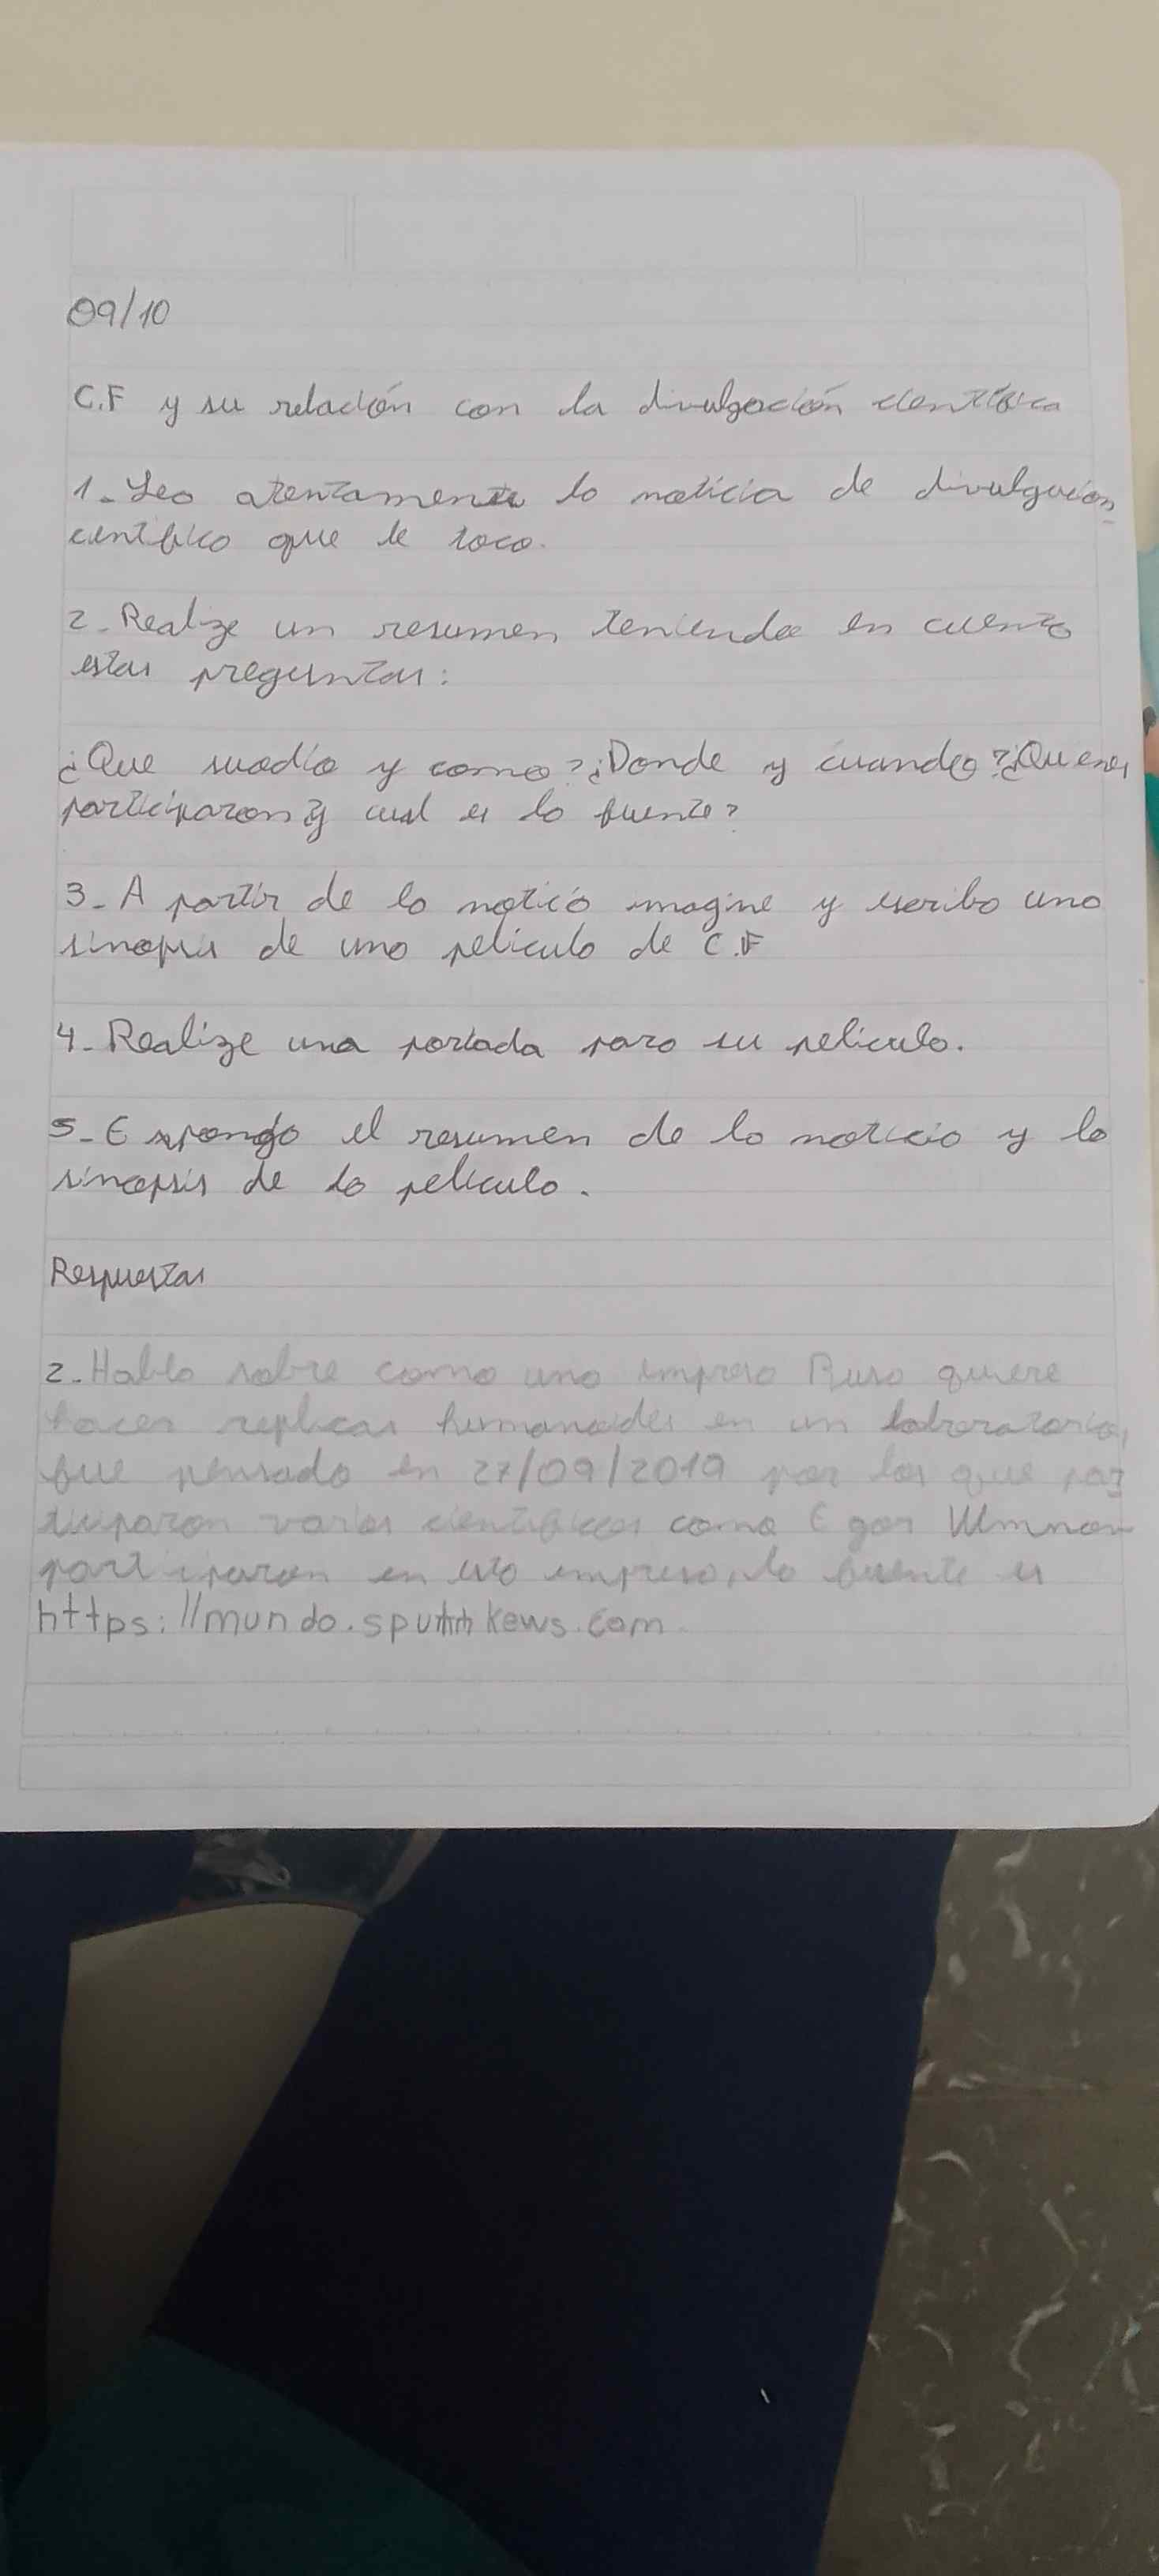 09/10
C.F y su relación con la divulgación cientifica
1. Lea atentamente la noticia de divulgación
cientifico que le toco.
2. Realize un resumen teniendo en cuenta
estas preguntas:
¿Que sucedio y como? ¿Donde y cuando? ¿Quienes
participaron y cual es la fuente?
3. A partir de la notició imagine y escriba una
sinopsis de una pelicula de C.F
4. Realize una portada para su pelicula.
5. Exponga el resumen de la noticia y la
sinopsis de la pelicula.
Respuestas
2. Habla sobre como una empresa Rusa quiere
hacer replicas humanoides en un laboratorio,
fue pensado en 27/09/2019 por los que par
ticiparon varios cientificos como Egor
participaron en esta empresa, la fuente es
https://mundo.sputnikews.com